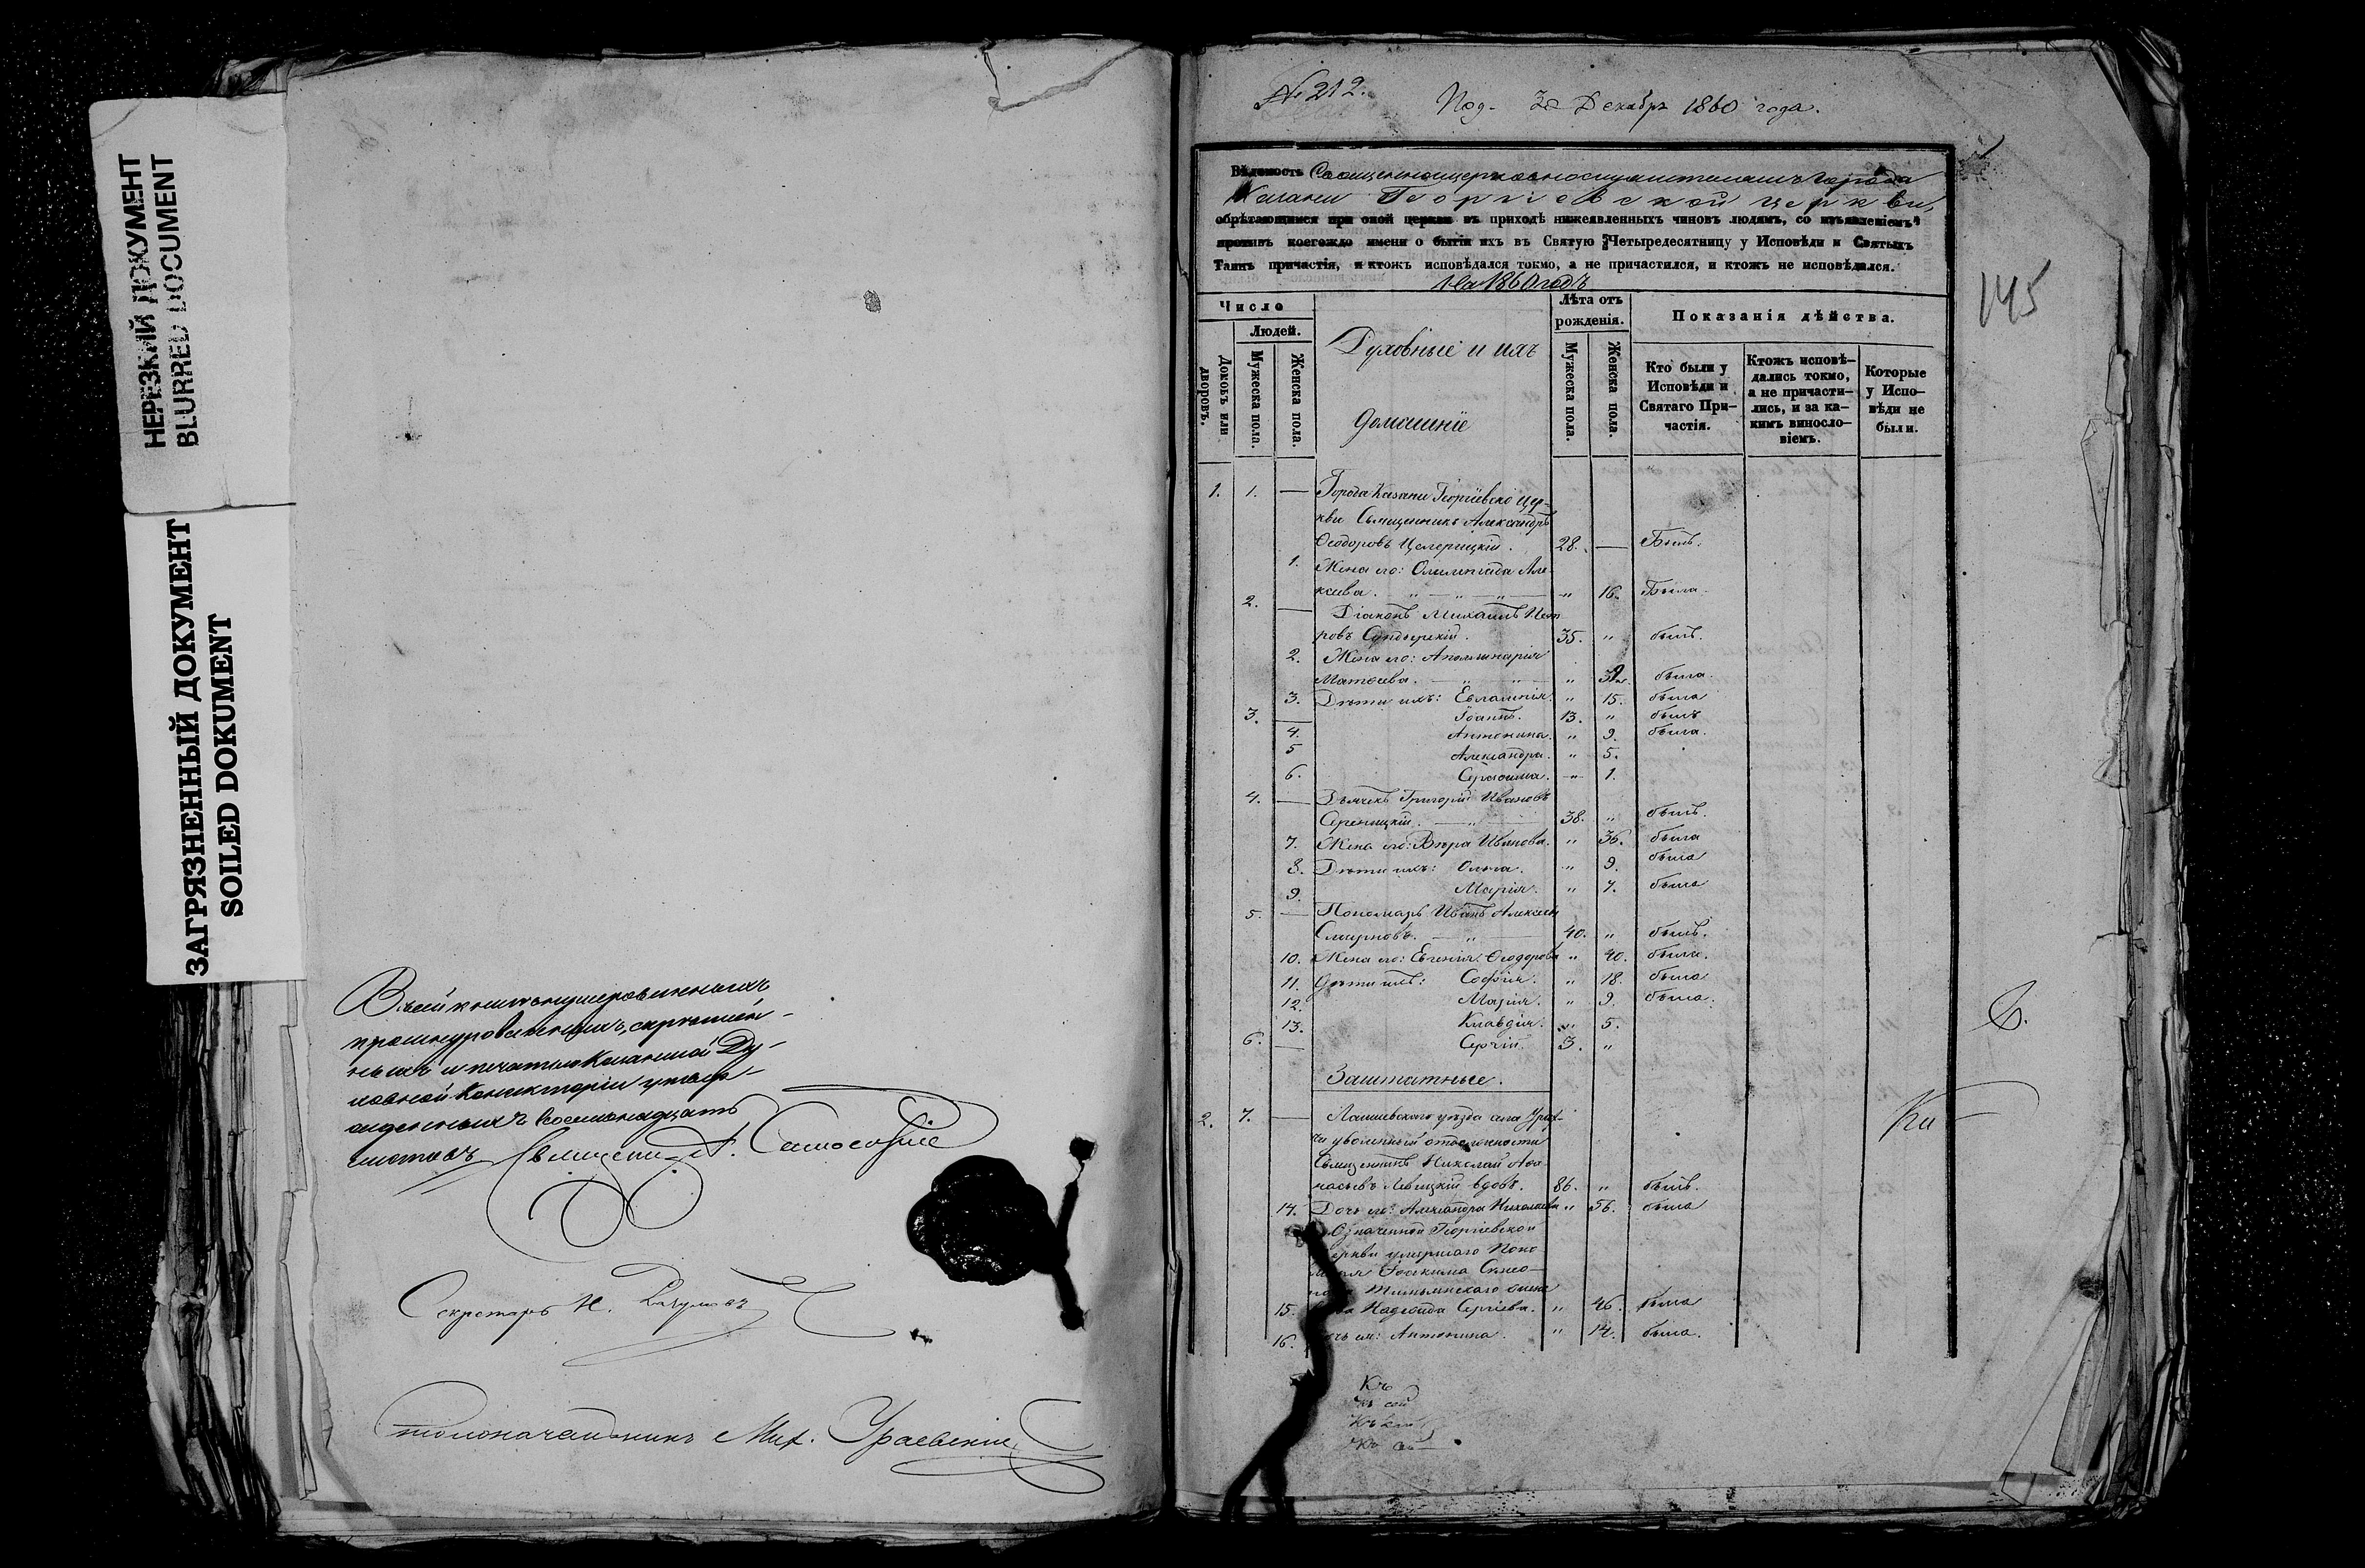 НЕРЕЗКИЙ ДОКУМЕНТ
BLURRED DOCUMENT
ЗАГРЯЗНЕННЫЙ ДОКУМЕНТ
SOILED DOKUMENT
Въ сей книге нумерованныхъ
прошнурованныхъ, скрѣплен-
ныхъ и печатью Казанской Ду-
ховной Консисторіи утвер-
жденныхъ восемьнадцать
листовъ Священникъ А.
Секретарь Н.
Столоначальникъ Мих. Ураевскій
№ 212.
Под. 30 Декабря 1860 года.
145
Вѣдомость Священноцерковнослужителямъ города
Казани Георгіевской церкви,
обрѣтающимся при оной церкви въ приходѣ нижеявленныхъ чиновъ людямъ, со изъявленіемъ
противъ коегождо имени о бытіи ихъ въ Святую Четыредесятницу у Исповѣди и Святыхъ
Таинъ причастія, и ктожъ исповѣдался токмо, а не причастился, и ктожъ не исповѣдался.
На 1860 годъ
Число
Людей.
Домовъ или дворовъ.
Мужеска пола.
Женска пола.
Духовные и ихъ
домашніе
Лѣта отъ рожденія.
Мужеска пола.
Женска пола.
Показанія дѣйства.
Кто были у Исповѣди и Святаго При-частія.
Ктожъ исповѣ-дались токмо, а не причасти-лись, и за ка-кимъ винословіемъ.
Которые у Испо-вѣди не были.
1. 1. — Города Казани Георгіевской Цер-
кви Священникъ Александръ
Ѳеодоровъ 28. — Былъ.
1. Жена его: Олимпіада Але-
ксѣева. " — " — " — " 16. Была.
2. — Діаконъ Михаилъ Пет
ровъ 35. " былъ.
2. Жена его: Аполлинарія
Матѳеева. — " — " — " была.
3. Дѣти ихъ: Евлампія " 15. была
3. — Іоаннъ. 13. " былъ
4. Антонина. " 9. была.
5 Александра. " 5.
6. " 1.
4. — Дьячекъ Григорій Ивановъ
38. " былъ.
7. Жена его: Вѣра Иванова. " 36. была
8. Дѣти ихъ: Ольга. " 9. была
9. Марія. " 7. была
5. — Пономарь Иванъ Алексѣев
Смирновъ. — " — 40. " былъ.
10. Жена его: Евгенія Ѳеодорова " 40. была.
11. Дѣти ихъ: Софія. " 18. была
12. Марія. " 9. была.
13. Клавдія. " 5.
6. — Сергій. 3. "
Заштатные.
2. 7. — Лаишевскаго уѣзда села
уволенный отъ должности
Священникъ Николай Аѳа
насьевъ Левицкій вдовъ. 86. " былъ.
14. Дочь его: Александра Николаева " 56. была
Означенной Георгіевской
церкви умершаго Поно
маря Іоакима
жена
15. Надежда Сергіева. " 46. была
16. дочь ея: Антонина. " 14. была.
Къ